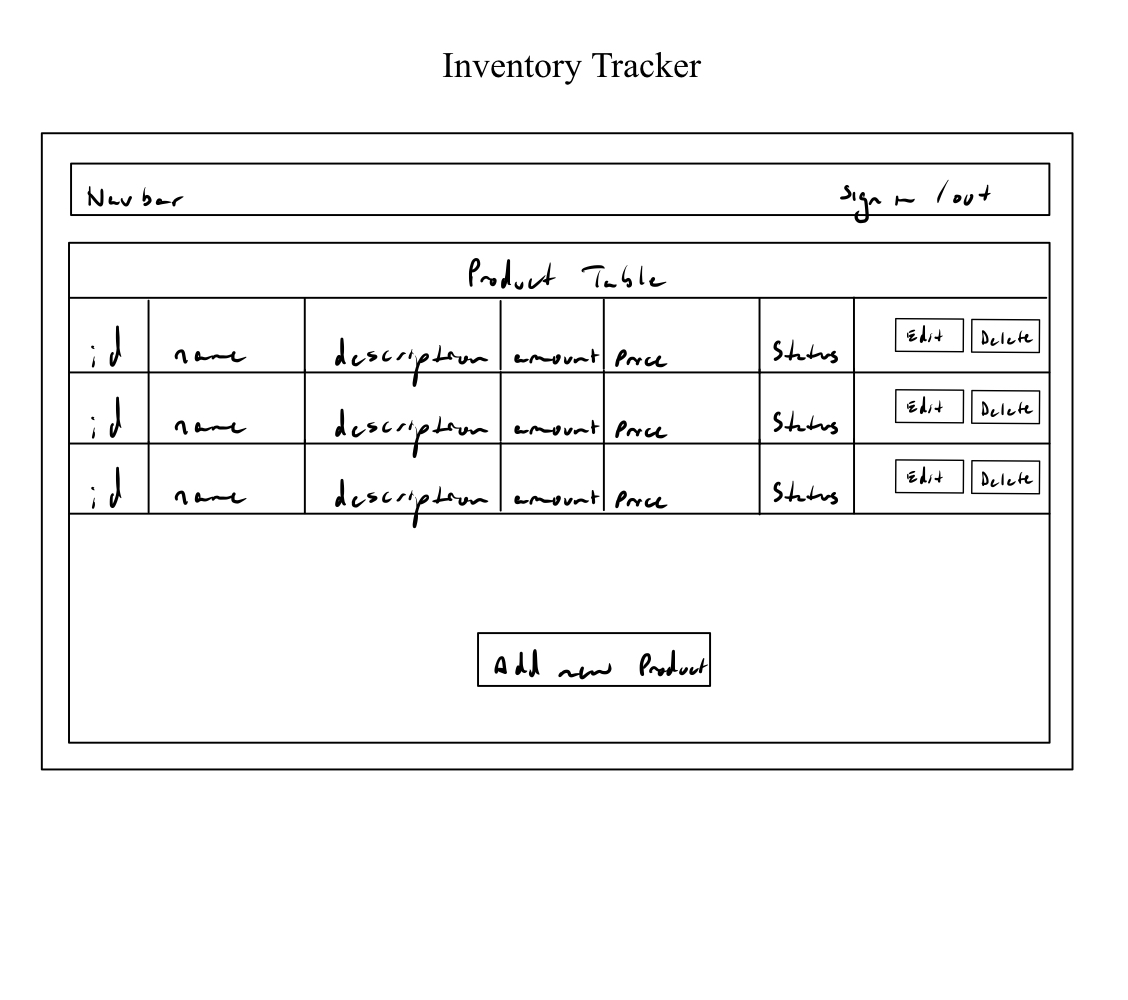 Inventory Tracker
Navbar Sign in / out
Product Table
id name description amount Price Status Edit Delete
id name description amount Price Status Edit Delete
id name description amount Price Status Edit Delete
Add new Product